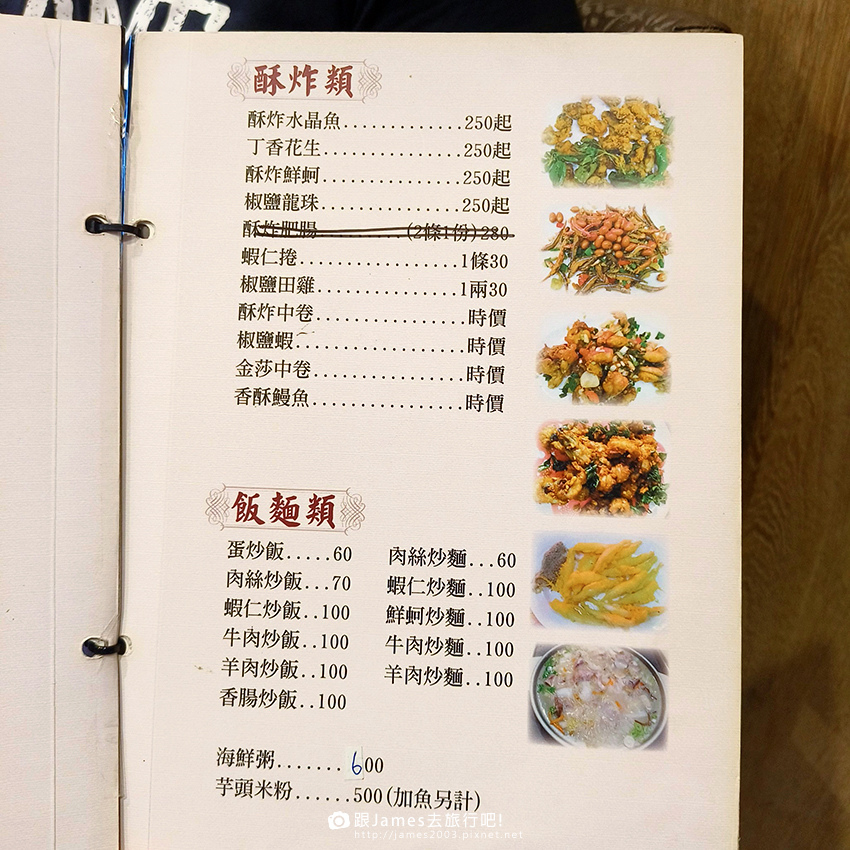 酥炸類
酥炸水晶魚.............250起
丁香花生...............250起
酥炸鮮蚵...............250起
椒鹽龍珠...............250起
酥炸肥腸.........(2條1份)280
蝦仁捲.................1條30
椒鹽田雞...............1兩30
酥炸中卷................時價
椒鹽蝦..................時價
金莎中卷................時價
香酥鰻魚................時價
飯麵類
蛋炒飯.....60
肉絲炒飯...70
蝦仁炒飯..100
牛肉炒飯..100
羊肉炒飯..100
香腸炒飯..100
肉絲炒麵...60
蝦仁炒麵..100
鮮蚵炒麵..100
牛肉炒麵..100
羊肉炒麵..100
海鮮粥.......600
芋頭米粉......500(加魚另計)
跟James去旅行吧!
http://james2003.pixnet.net